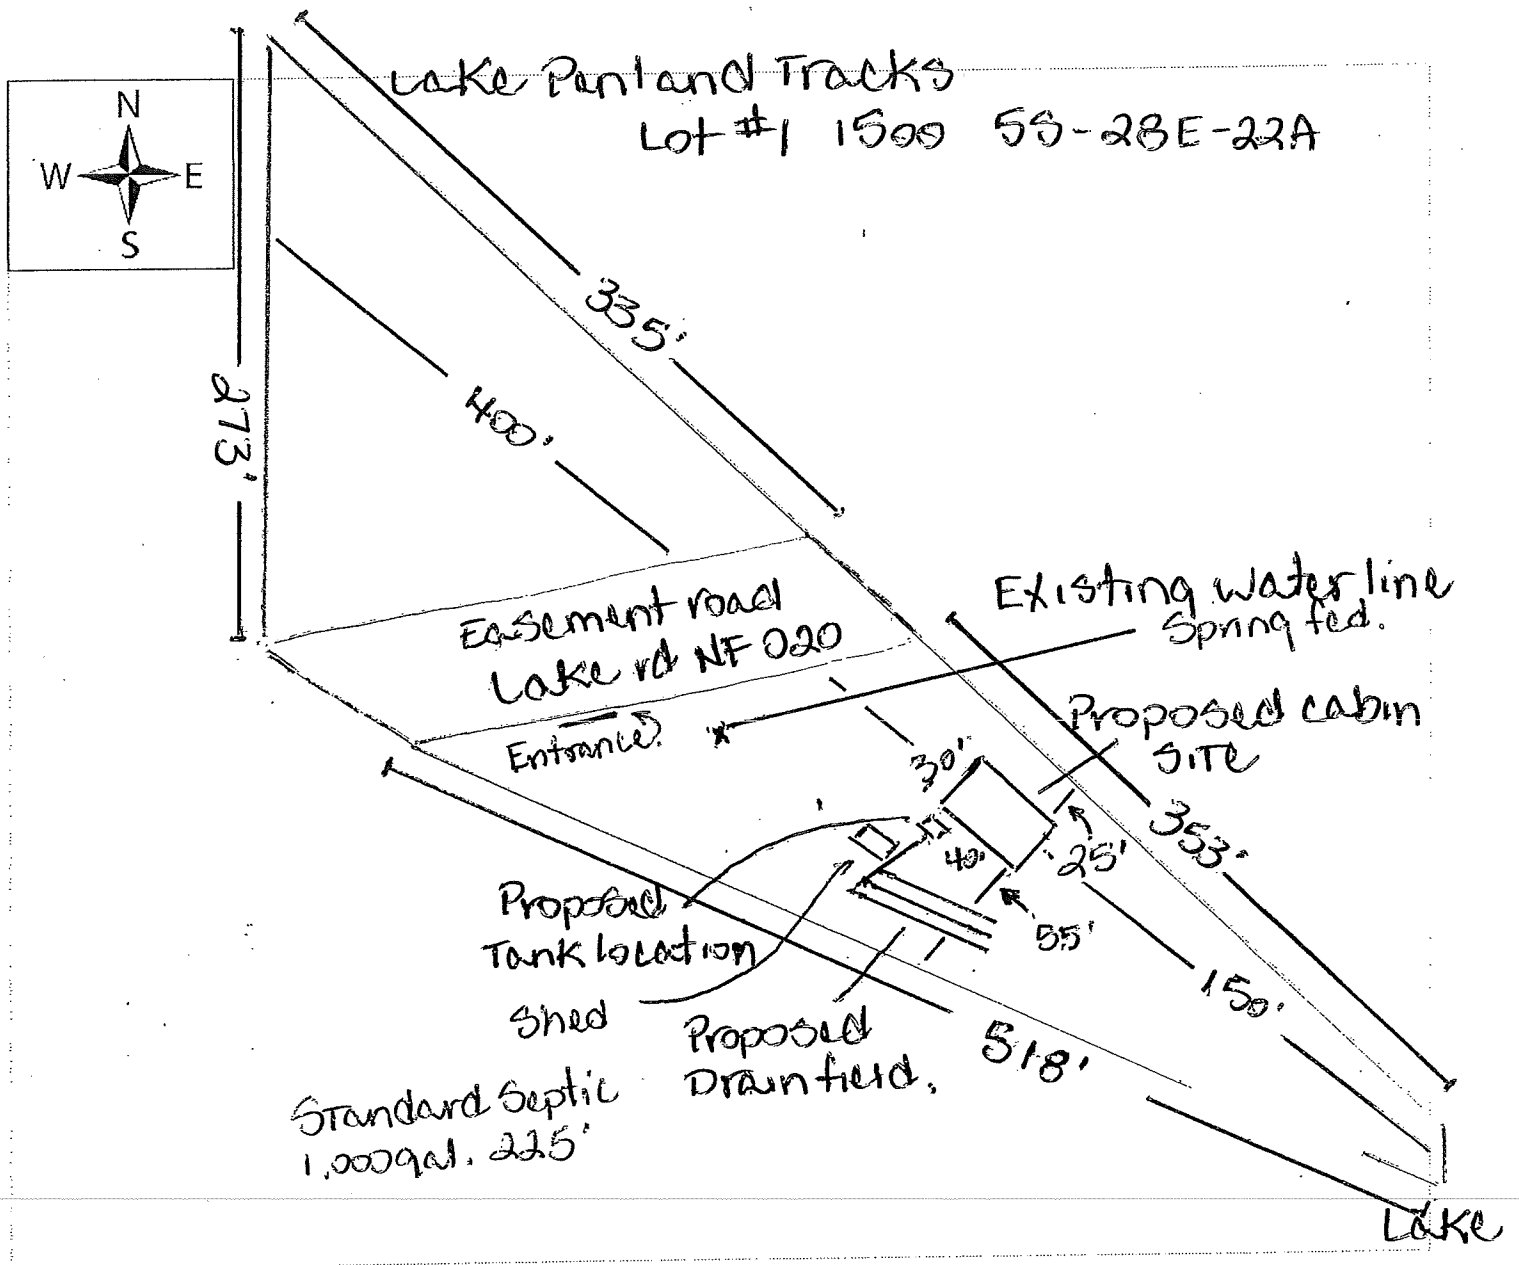 Lake Penland Tracks
Lot #1 1500 5S-28E-22A
N
W E
S
335'
273'
400'
Easement road
Lake rd NF 020
Existing waterline
Spring fed.
Entrance
Proposed cabin
SITE
30'
353'
40'
25'
55'
Proposed
Tank location
Shed
Proposed
Drainfield.
150'
518'
Standard Septic
1,000gal. 225'
Lake